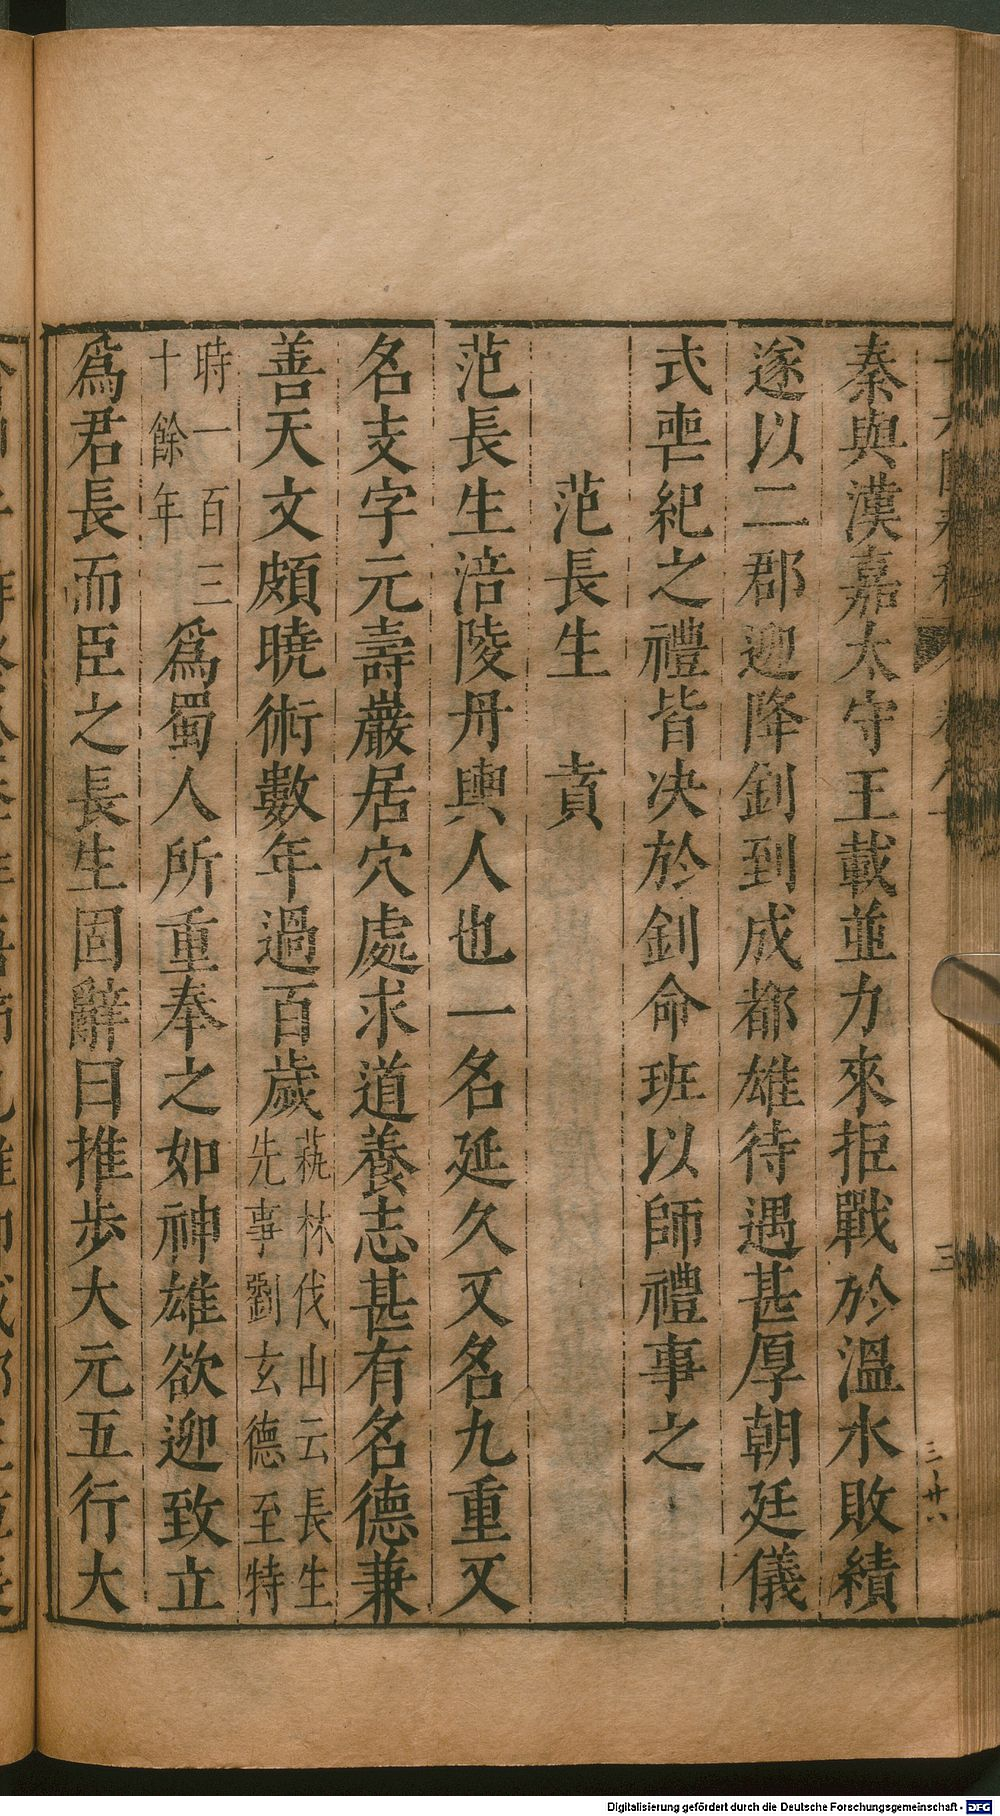 秦與漢嘉太守王載並力來拒戰於溫水敗績
遂以二郡迎降釗到成都雄待遇甚厚朝廷儀
式喪紀之禮皆決於釗命班以師禮事之
范長生 賁
范長生涪陵丹輿人也一名延久又名九重又
名支字元壽巖居穴處求道養志甚有名德兼
善天文頗曉術數年過百歲
蓺林伐山云長生
先事劉玄德至特
時一百三
十餘年
爲蜀人所重奉之如神雄欲迎致立
爲君長而臣之長生固辭曰推步大元五行大
三
三廿六
Digitalisierung gefördert durch die Deutsche Forschungsgemeinschaft - DFG